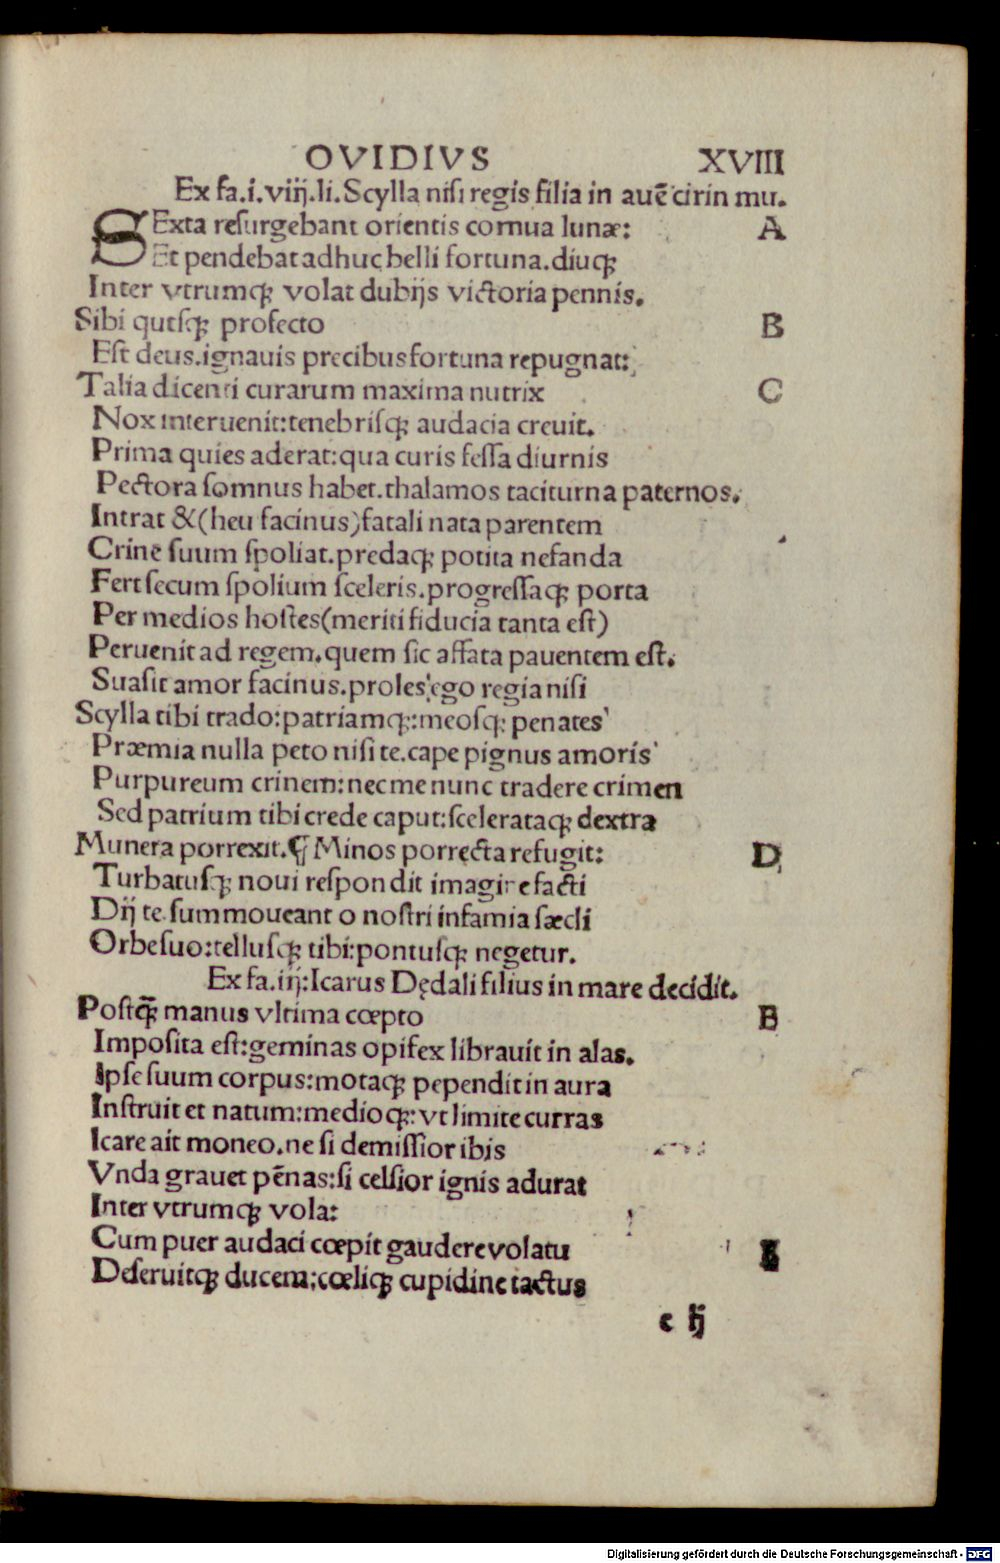 OVIDIVS XVIII
Ex fa.i.viij.li.Scylla nisi regis filia in auē cirin mu.
SExta resurgebant orientis cornua lunæ: A
Et pendebat adhuc belli fortuna.diuqꝫ
Inter vtrumqꝫ volat dubijs victoria pennis.
Sibi quisqꝫ profecto B
Est deus.ignauis precibus fortuna repugnat:
Talia dicenti curarum maxima nutrix C
Nox interuenit:tenebrisqꝫ audacia creuit.
Prima quies aderat:qua curis fessa diurnis
Pectora somnus habet.thalamos taciturna paternos.
Intrat &(heu facinus)fatali nata parentem
Crinē suum spoliat.predaqꝫ potita nefanda
Fert secum spolium sceleris.progressaqꝫ porta
Per medios hostes(meriti fiducia tanta est)
Peruenit ad regem.quem sic affata pauentem est.
Suasit amor facinus.proles ego regia nisi
Scylla tibi trado:patriamqꝫ:meosqꝫ penates
Præmia nulla peto nisi te.cape pignus amoris
Purpureum crinem:nec me nunc tradere crimen
Sed patrium tibi crede caput:scelerataqꝫ dextra
Munera porrexit.¶ Minos porrecta refugit: D
Turbatusqꝫ noui respondit imagine facti
Dij te summoueant o nostri infamia sæcli
Orbe suo:tellusqꝫ tibi:pontusqꝫ negetur.
Ex fa.iij:Icarus Dędali filius in mare decidit.
Postq̄ꝫ manus vltima cœpto B
Imposita est:geminas opifex librauit in alas.
Ipse suum corpus:motaqꝫ pependit in aura
Instruit et natum:medioqꝫ:vt limite curras
Icare ait moneo.ne si demissior ibis
Vnda grauet pēnas:si celsior ignis adurat
Inter vtrumqꝫ vola:
Cum puer audaci cœpit gaudere volatu
Deseruitqꝫ ducem:cœliqꝫ cupidine tactus
c ij
Digitalisierung gefördert durch die Deutsche Forschungsgemeinschaft - DFG